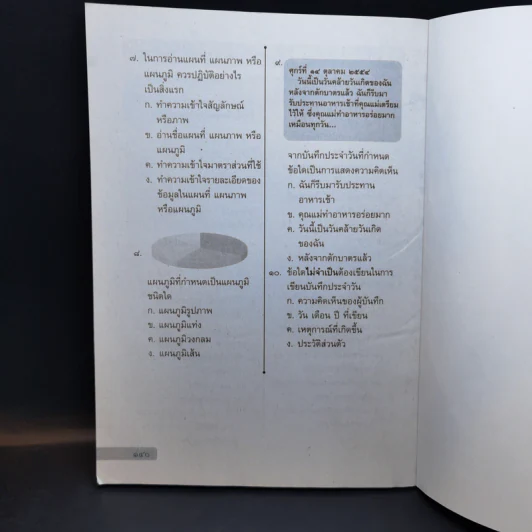 ๗. ในการอ่านแผนที่ แผนภาพ หรือ
แผนภูมิ ควรปฏิบัติอย่างไร
เป็นสิ่งแรก
ก. ทำความเข้าใจสัญลักษณ์
หรือภาพ
ข. อ่านชื่อแผนที่ แผนภาพ หรือ
แผนภูมิ
ค. ทำความเข้าใจมาตราส่วนที่ใช้
ง. ทำความเข้าใจรายละเอียดของ
ข้อมูลในแผนที่ แผนภาพ
หรือแผนภูมิ
๘.
แผนภูมิที่กำหนดเป็นแผนภูมิ
ชนิดใด
ก. แผนภูมิรูปภาพ
ข. แผนภูมิแท่ง
ค. แผนภูมิวงกลม
ง. แผนภูมิเส้น
๙.
ศุกร์ที่ ๑๔ ตุลาคม ๒๕๕๔
วันนี้เป็นวันคล้ายวันเกิดของฉัน
หลังจากตักบาตรแล้ว ฉันก็รีบมา
รับประทานอาหารเช้าที่คุณแม่เตรียม
ไว้ให้ ซึ่งคุณแม่ทำอาหารอร่อยมาก
เหมือนทุกวัน...
จากบันทึกประจำวันที่กำหนด
ข้อใดเป็นการแสดงความคิดเห็น
ก. ฉันก็รีบมารับประทาน
อาหารเช้า
ข. คุณแม่ทำอาหารอร่อยมาก
ค. วันนี้เป็นวันคล้ายวันเกิด
ของฉัน
ง. หลังจากตักบาตรแล้ว
๑๐. ข้อใดไม่จำเป็นต้องเขียนในการ
เขียนบันทึกประจำวัน
ก. ความคิดเห็นของผู้บันทึก
ข. วัน เดือน ปี ที่เขียน
ค. เหตุการณ์ที่เกิดขึ้น
ง. ประวัติส่วนตัว